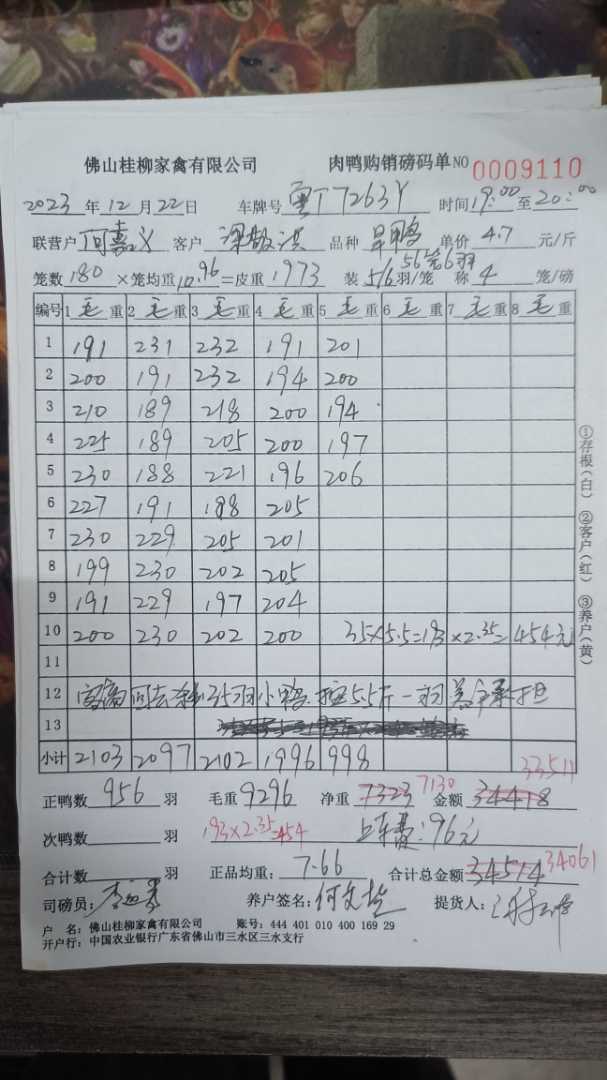 佛山桂柳家禽有限公司 肉鸭购销磅码单 NO 0009110
2023年12月22日 车牌号 粤T7263Y 时间19:00至20:00
联营户 何嘉义 客户 品种 旱鸭 单价 4.7 元/斤
笼数 180 ×笼均重 10.96 =皮重 1973 装 5/6 羽/笼 56笼6羽 称 4 笼/磅
编号 1 毛 重 2 毛 重 3 毛 重 4 毛 重 5 毛 重 6 毛 重 7 毛 重 8 毛 重
1 191 231 232 191 201
2 200 191 232 194 200
3 210 189 218 200 194
4 225 189 205 200 197
5 230 188 221 196 206
6 227 191 188 205
7 230 229 205 201
8 199 230 202 205
9 191 229 197 204
10 200 230 202 200 35×5.5=193×2.35=454元
11
12 客 回去 35羽小鸭 5.5斤一羽 承担
13
小计 2103 2097 2102 1996 998
33511
正鸭数 956 羽 毛重 9296 净重 7323 7130 金额 34418
次鸭数 羽 193×2.35=454 上车费:96元
合计数 羽 正品均重: 7.66 合计总金额 34514 34061
司磅员: 养户签名: 提货人:
户 名: 佛山桂柳家禽有限公司 账号: 444 401 010 400 169 29
开户行: 中国农业银行广东省佛山市三水区三水支行
①存根(白) ②客户(红) ③养户(黄)